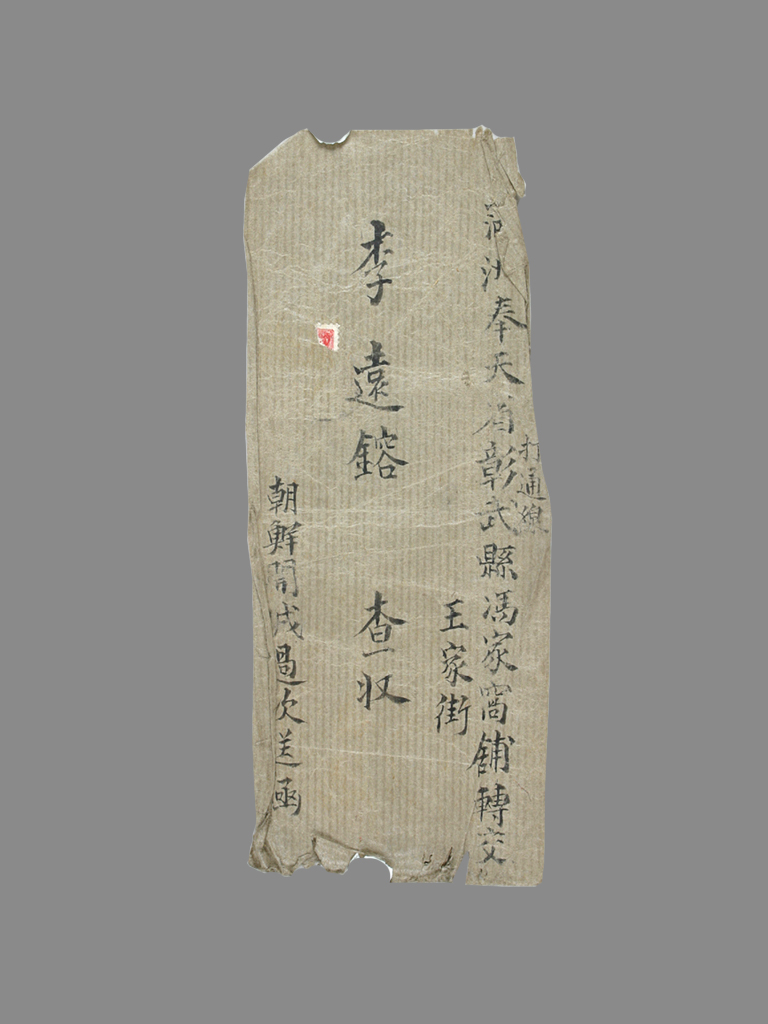 打通線
奉天省彰武縣馮家窩舖轉交
王家街
李遠鎔 查収
朝鮮開城過次送函